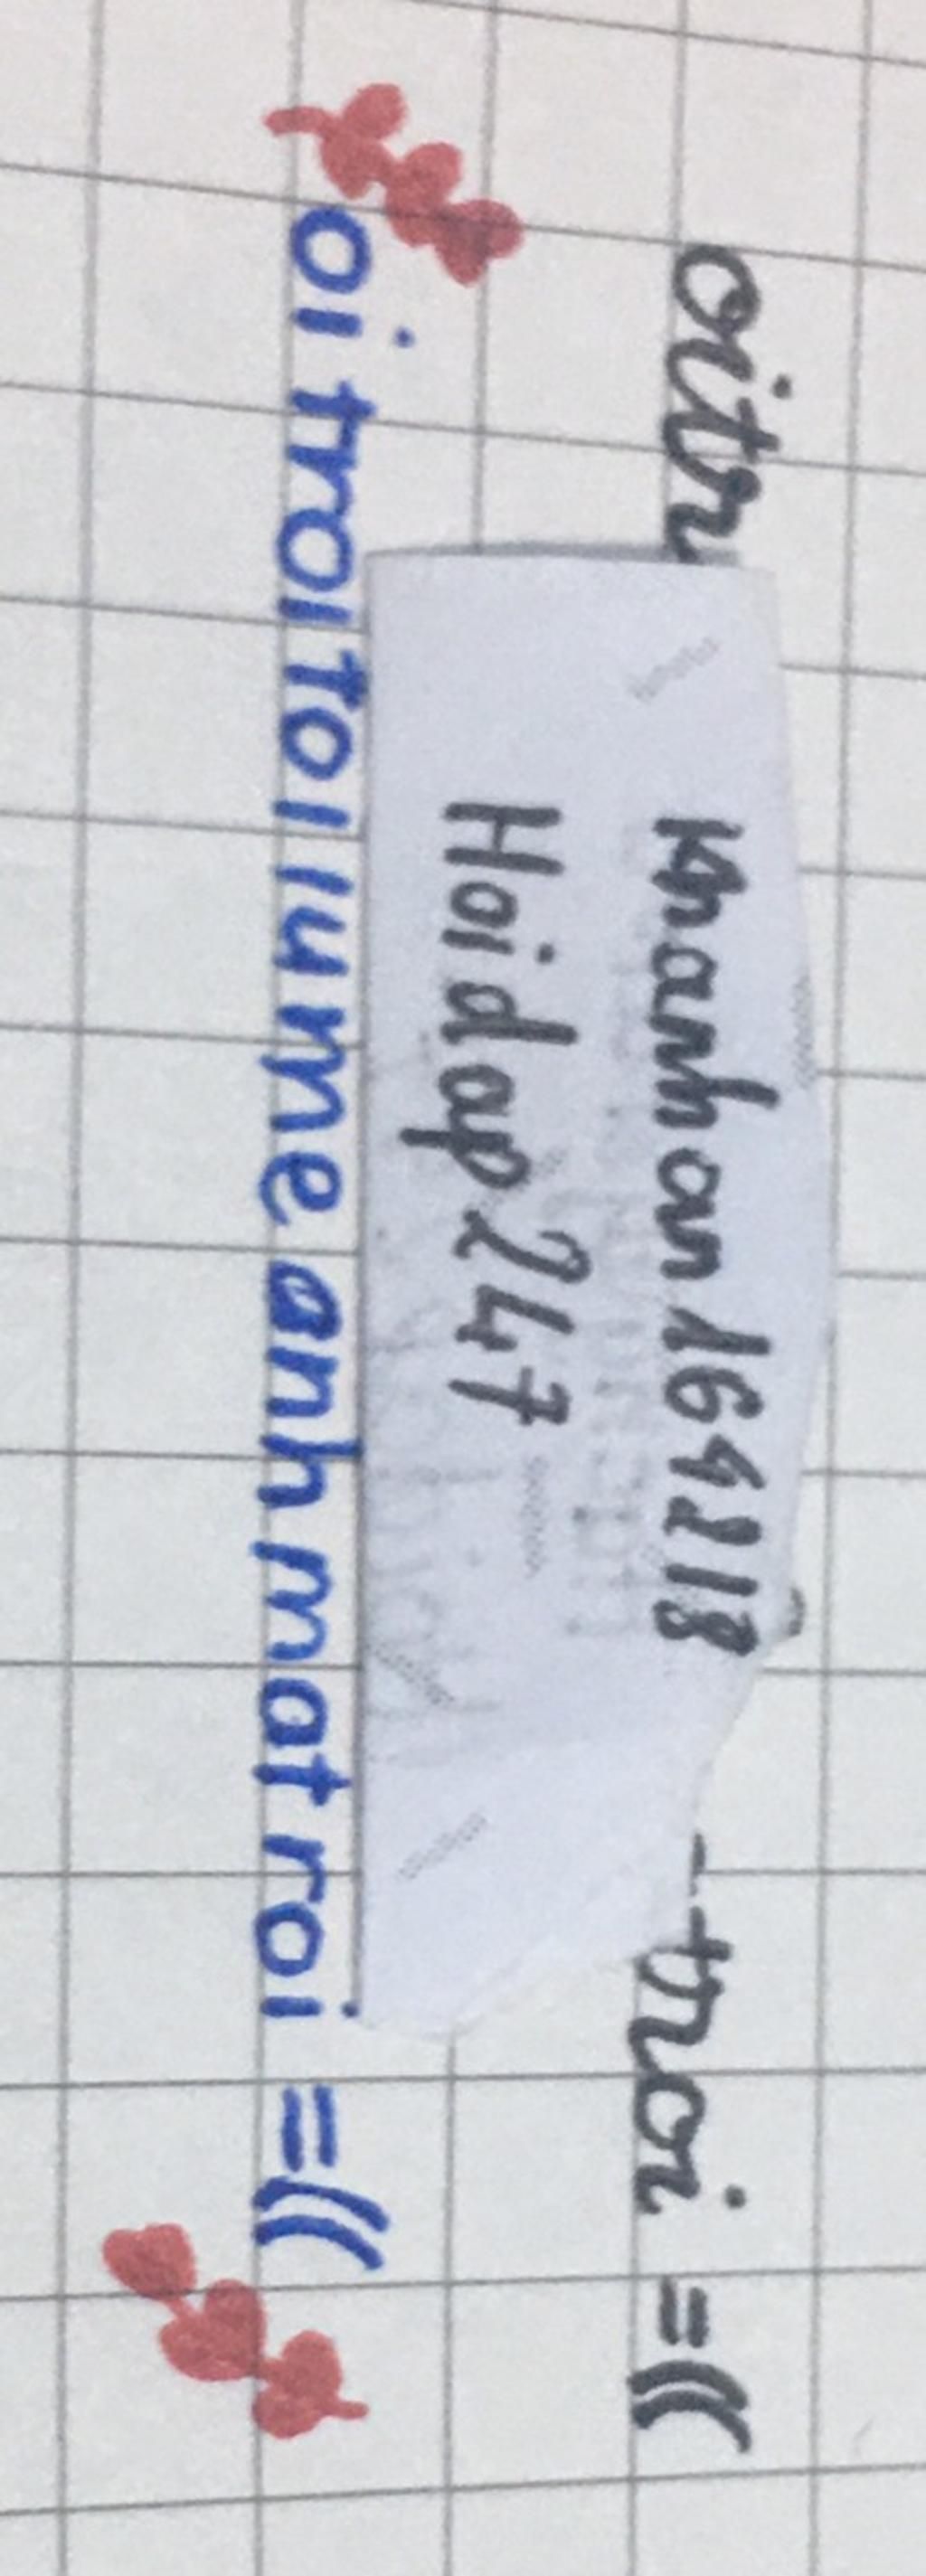 oitr
-troi =((
Khanhan164218
Hoidap247
oi troitoiiumeanhmatroi =((